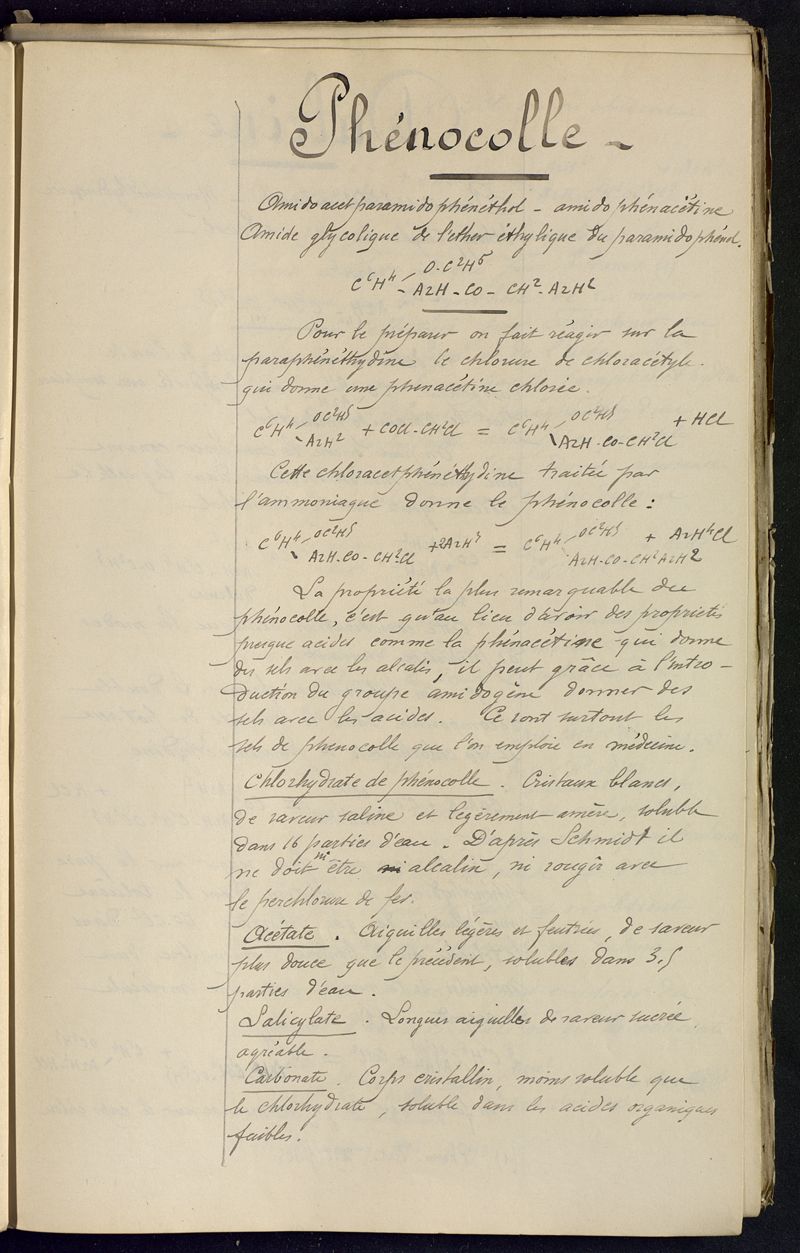 Phénocolle -
Amidoacetparamidophénéthol - amidophénacétine
Amide glycolique de l'ether éthylique du paramidophénol.
O-C²H⁵
C⁶H⁴
AzH - CO - CH² - AzH²
Pour le préparer on fait réagir sur la
paraphénéthydine le chlorure de chloracétyle.
qui donne une phénacétine chlorée.
C⁶H⁴ OC²H⁵ AzH² + COCl-CH²Cl = C⁶H⁴ OC²H⁵ AzH-CO-CH²Cl + HCl
Cette chloracetphénéthydine traitée par
l'ammoniaque donne le phénocolle :
C⁶H⁴ OC²H⁵ AzH-CO-CH²Cl + 2AzH³ = C⁶H⁴ OC²H⁵ AzH-CO-CH²AzH² + AzH⁴Cl
La propriété la plus remarquable du
phénocolle, c'est qu'au lieu d'avoir des propriétés
presque acides comme la phénacétine qui donne
des sels avec les alcalis, il peut grâce à l'intro-
duction du groupe amidogène donner des
sels avec les acides. Ce sont surtout les
sels de phenocolle que l'on emploie en médecine.
Chlorhydrate de phénocolle. Cristaux blancs,
de saveur saline et légèrement amère, soluble
dans 16 parties d'eau. D'après Schmidt il
ne doit ni être alcalin, ni rougir avec
le perchlorure de fer.
Acétate. Aiguilles légères et feutrées, de saveur
plus douce que le précédent, solubles dans 3.5
parties d'eau.
Salicylate. Longues aiguilles de saveur sucrée
agréable.
Carbonate. Corps cristallin, moins soluble que
le chlorhydrate, soluble dans les acides organiques
faibles.